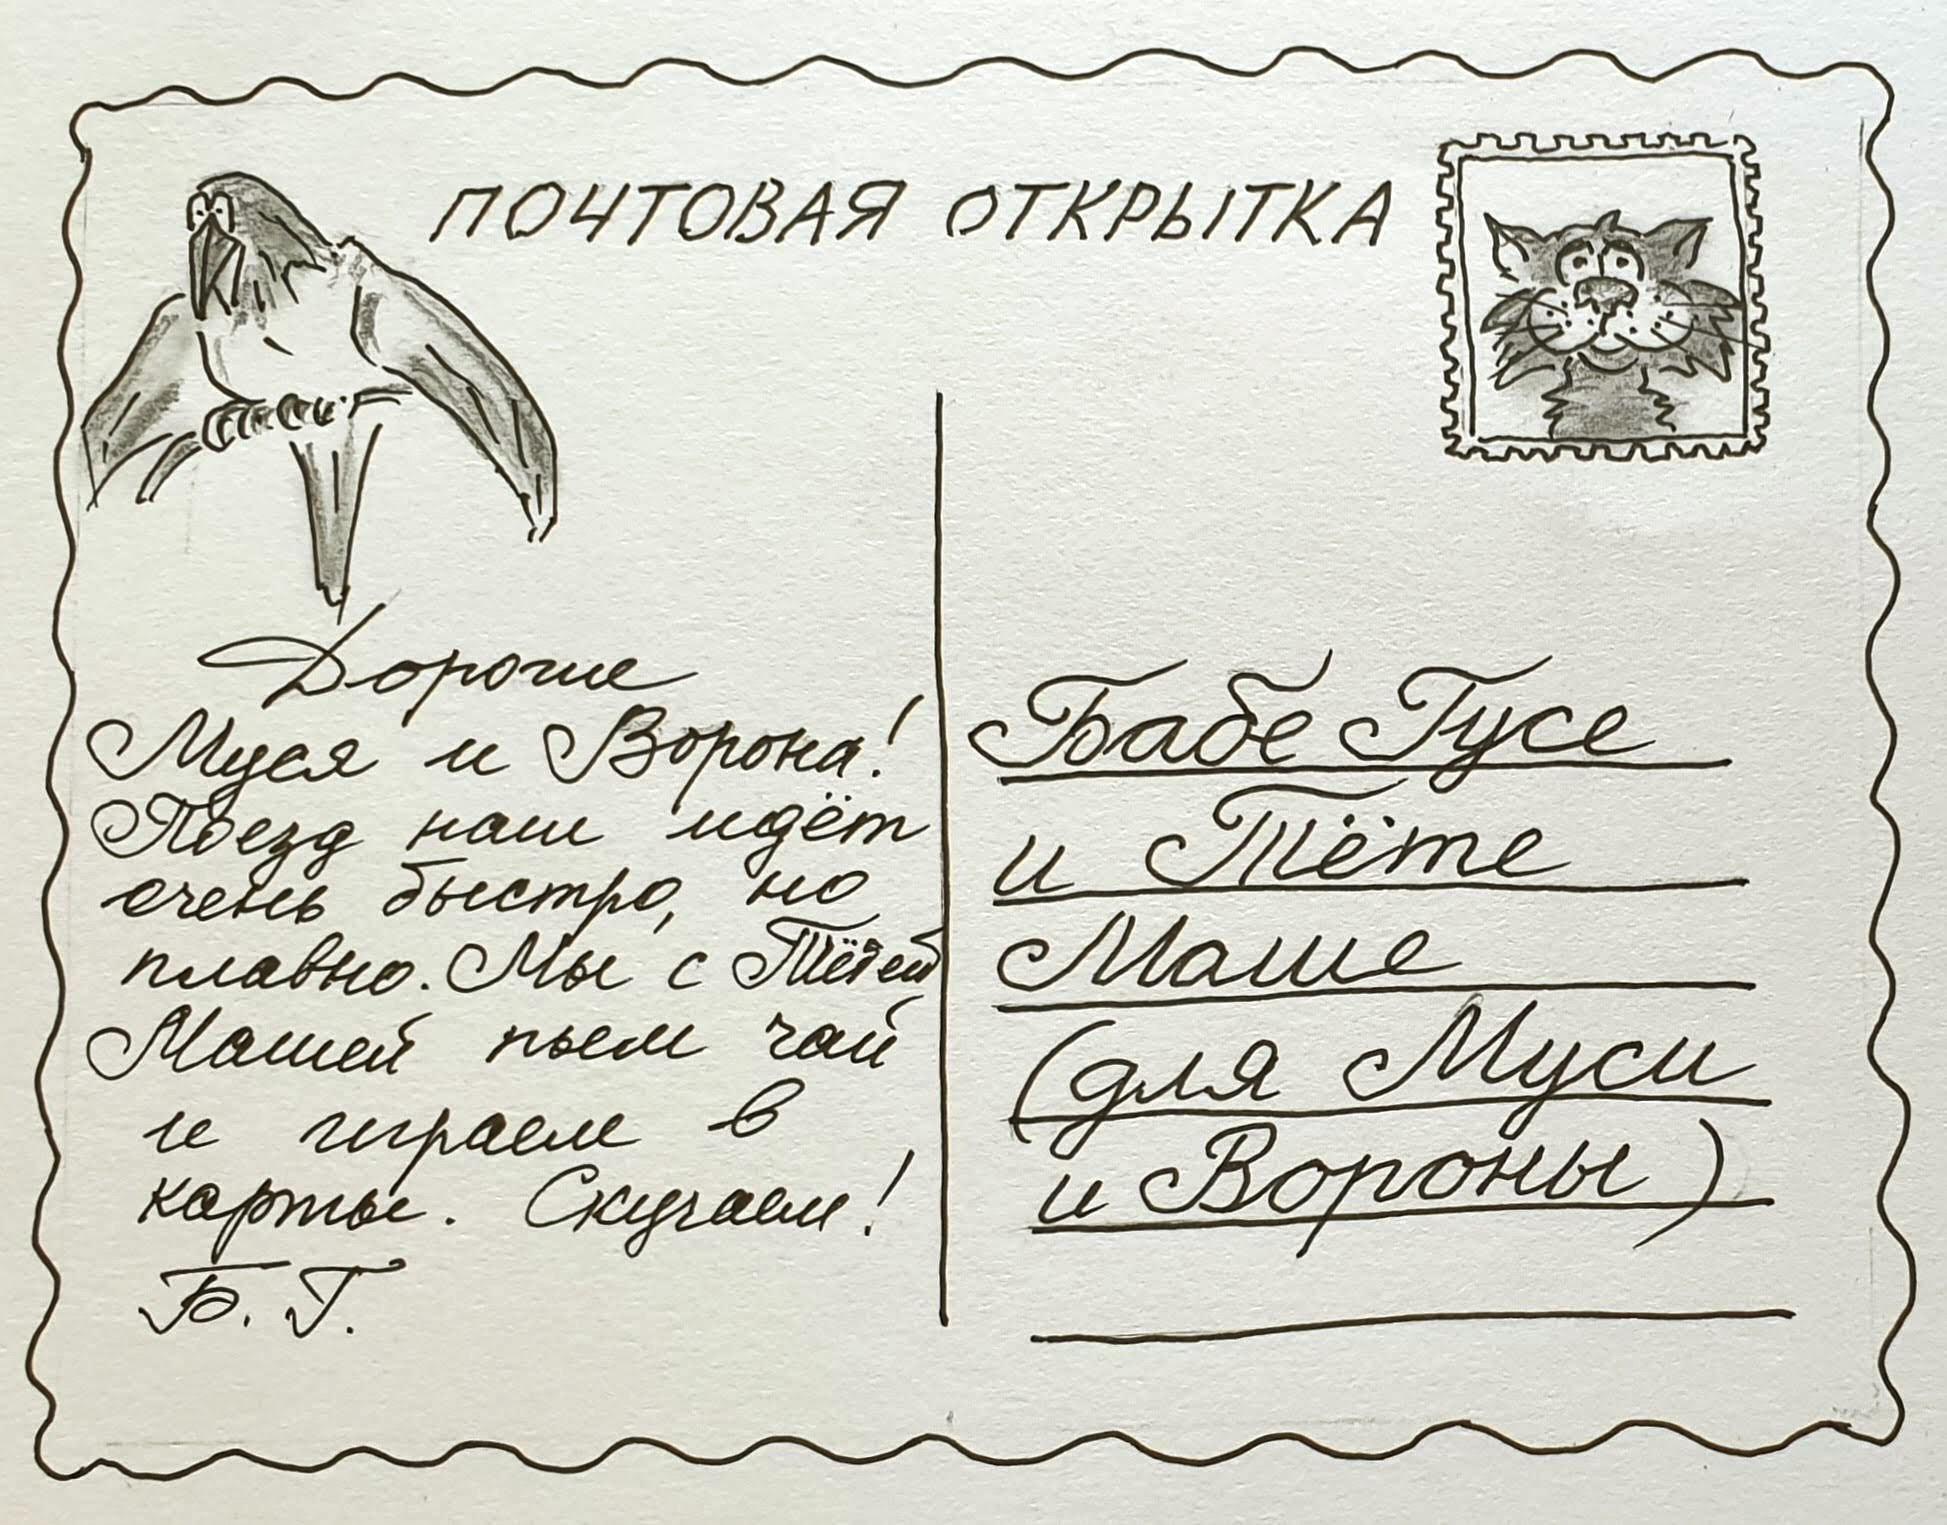 ПОЧТОВАЯ ОТКРЫТКА
Дорогие
Муся и Ворона!
Поезд наш идёт
очень быстро, но
плавно. Мы с Тётей
Машей пьем чай
и играем в
карты. Скучаем!
Б. Г.
Бабе Гусе
и Тёте
Маше
(для Муси
и Вороны)